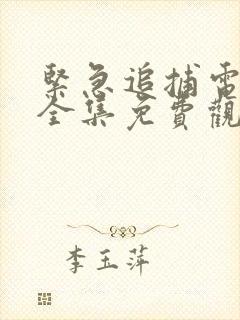 緊急追捕電
全集免費觀
李玉萍